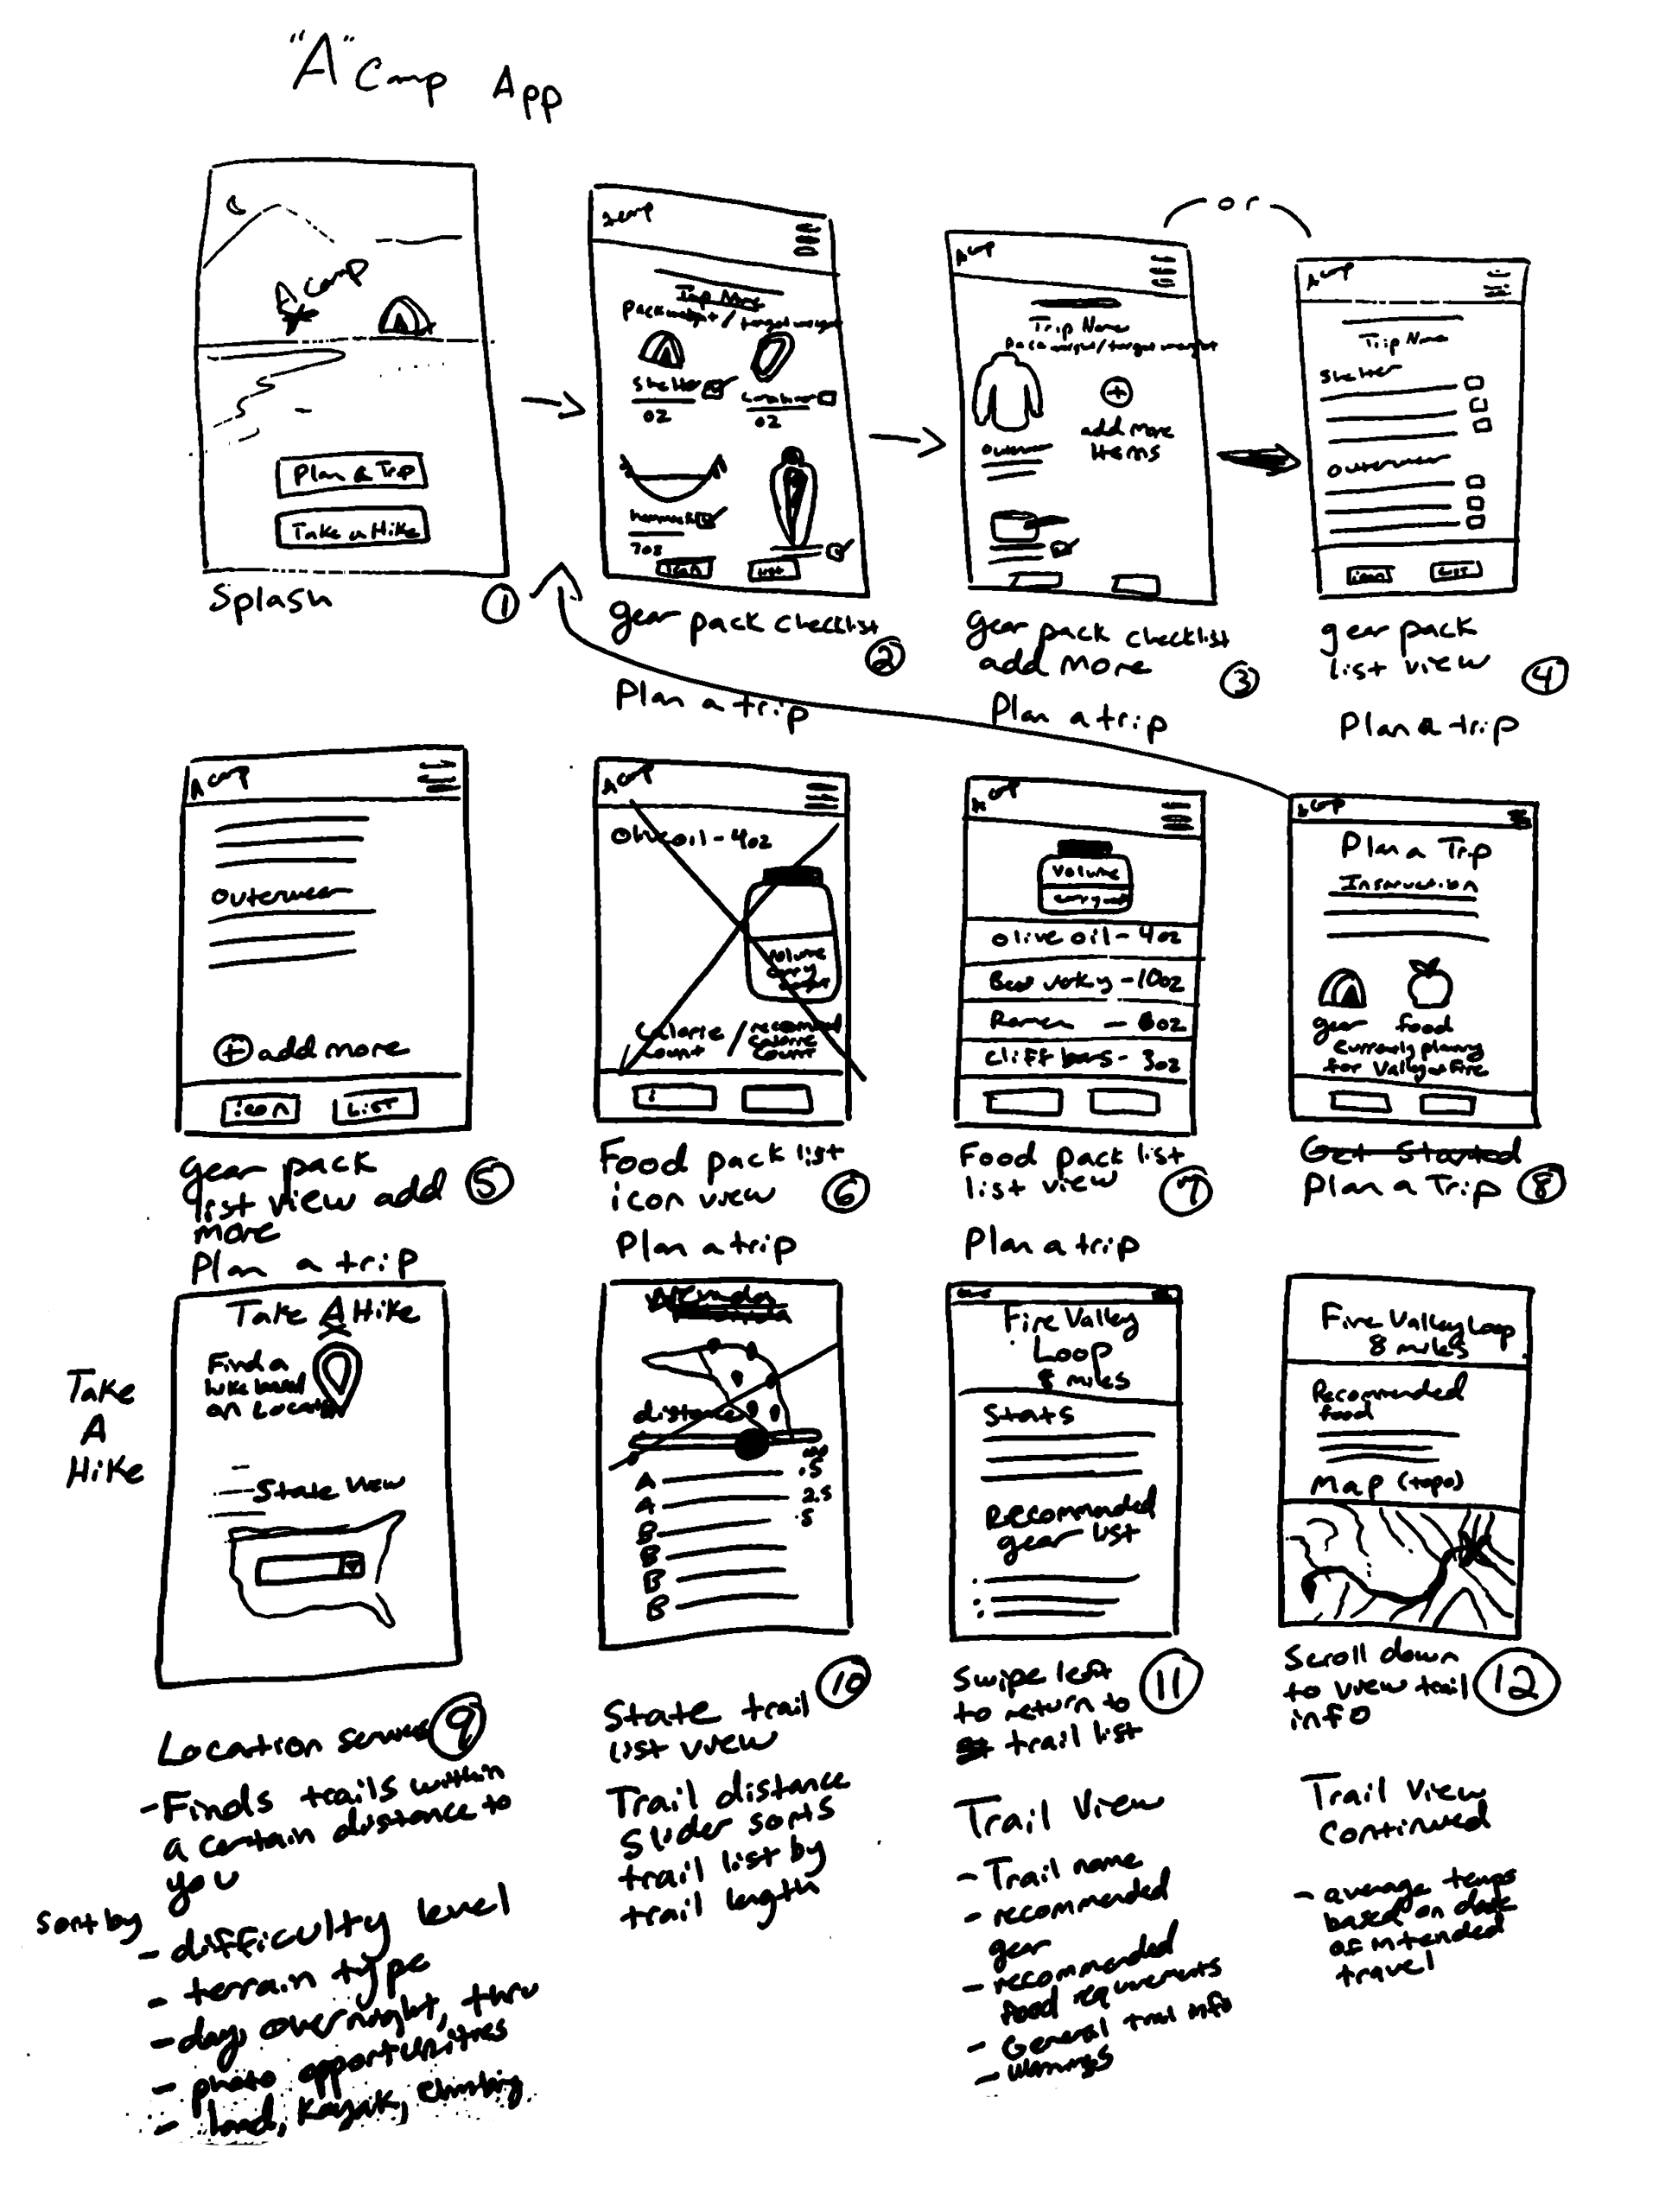 "A" Camp App
A camp
Plan a Trip
Take a Hike
Splash
1
Acamp
Trip Name
packweight / target weight
Shelter
oz
oz
hammock
7oz
icon
List
gear pack checklist
2
Plan a trip
or
A camp
Trip Name
pack weight / target weight
add more
items
gear pack checklist
add more
3
Plan a trip
A camp
Trip Name
Shelter
Outerwear
icon
LIST
gear pack
list view
4
Plan a trip
A camp
Outerwear
+ add more
icon
LIST
gear pack
list view add
more
5
Plan a trip
A camp
Olive oil - 4oz
volume
carry
weight
Calorie
count
/
recommend
calorie
count
Food pack list
icon view
6
Plan a trip
A camp
volume
olive oil - 4oz
Beef Jerky - 10oz
Ramen - 6oz
cliff bars - 3oz
Food pack list
list view
7
Plan a trip
A camp
Plan a Trip
Instruction
gear
food
currently planning
for Valley of Fire
Get Started
Plan a Trip
8
Take
A
Hike
Take A Hike
Find a
hike based
on Location
State View
Location services
9
- Finds trails within
a certain distance to
you
sort by
- difficulty level
- terrain type
- day, overnight, thru
- photo opportunities
- land, Kayak, climbing
Nevada
distance
100
A
.5
A
2.5
B
.5
B
B
B
State trail
list view
10
Trail distance
Slider sorts
trail list by
trail length
Fire Valley
Loop
8 miles
Stats
Recommended
gear list
Swipe left
to return to
trail list
11
Trail View
- Trail name
- recommended
gear
- recommended
food requirements
- General trail info
- Warnings
Fire Valley Loop
8 miles
Recommended
food
Map (topo)
Scroll down
to view trail
info
12
Trail View
Continued
- average temps
based on date
of intended
travel